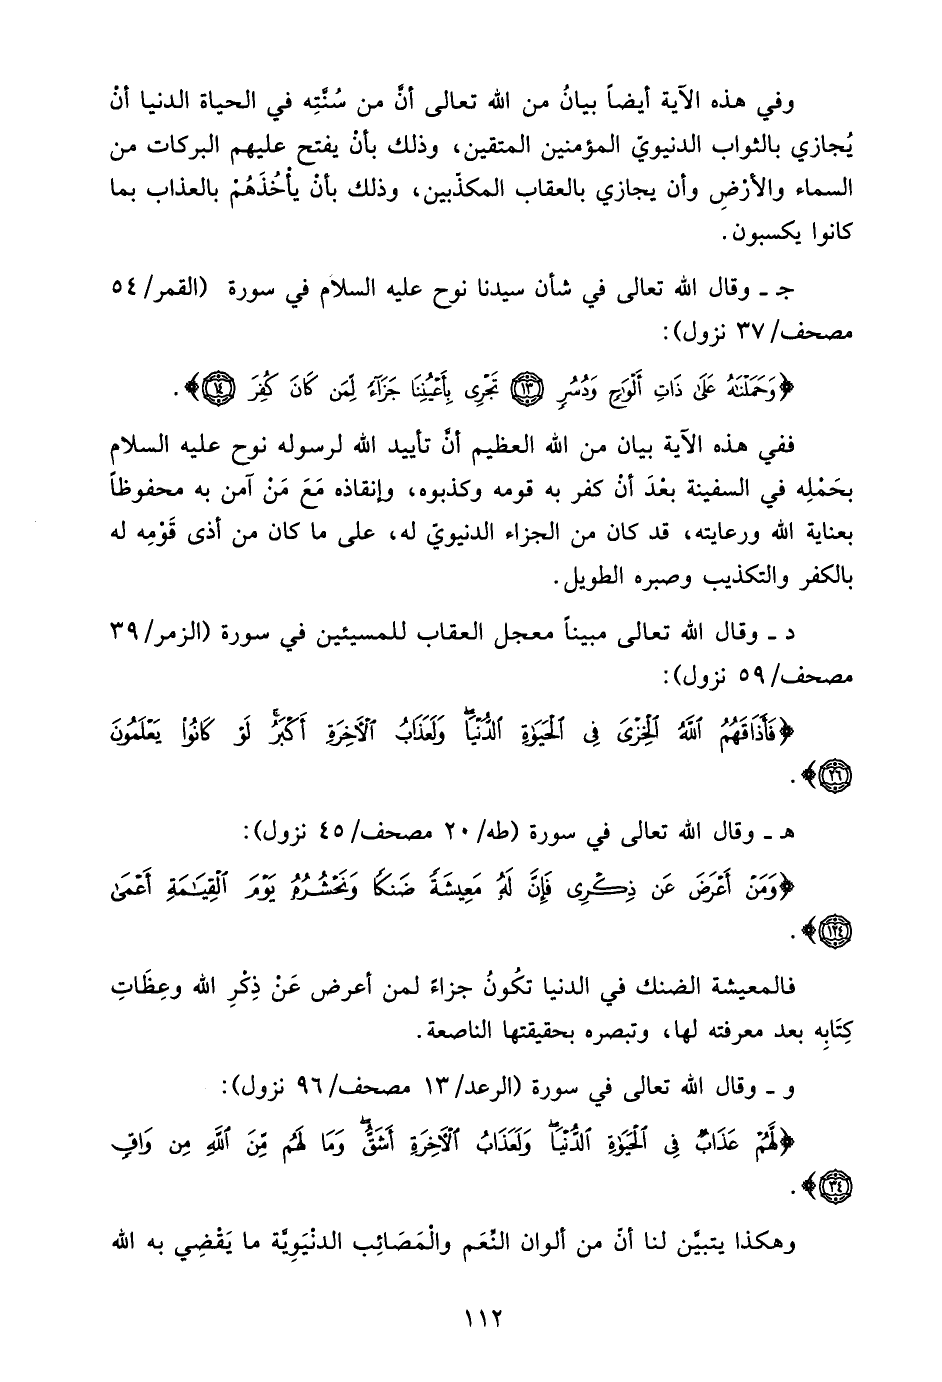 وفي هذه الآية أيضاً بيانُ من الله تعالى أنَّ من سُنَّتِه في الحياة الدنيا أنْ
يُجازي بالثواب الدنيويّ المؤمنين المتقين، وذلك بأنْ يفتح عليهم البركات من
السماء والأرْضِ وأن يجازي بالعقاب المكذّبين، وذلك بأنْ يأْخُذَهُمْ بالعذاب بما
كانوا يكسبون.
جـ ـ وقال الله تعالى في شأن سيدنا نوح عليه السلام في سورة (القمر/ ٥٤
مصحف/ ٣٧ نزول):
﴿وَحَمَلْنَٰهُ عَلَىٰ ذَاتِ أَلْوَٰحٍ وَدُسُرٍ ۝١٣ تَجْرِى بِأَعْيُنِنَا جَزَآءً لِّمَن كَانَ كُفِرَ ۝١٤﴾.
ففي هذه الآية بيان من الله العظيم أنَّ تأييد الله لرسوله نوح عليه السلام
بحَمْلِه في السفينة بعْدَ أنْ كفر به قومه وكذبوه، وإنقاذه مَعَ مَنْ آمن به محفوظاً
بعناية الله ورعايته، قد كان من الجزاء الدنيويّ له، على ما كان من أذى قَوْمِه له
بالكفر والتكذيب وصبره الطويل.
د ـ وقال الله تعالى مبيناً معجل العقاب للمسيئين في سورة (الزمر/ ٣٩
مصحف/ ٥٩ نزول):
﴿فَأَذَاقَهُمُ ٱللَّهُ ٱلْخِزْىَ فِى ٱلْحَيَوٰةِ ٱلدُّنْيَا ۖ وَلَعَذَابُ ٱلْآخِرَةِ أَكْبَرُ ۚ لَوْ كَانُوا۟ يَعْلَمُونَ
۝٢٦﴾.
هـ ـ وقال الله تعالى في سورة (طه/ ٢٠ مصحف/ ٤٥ نزول):
﴿وَمَنْ أَعْرَضَ عَن ذِكْرِى فَإِنَّ لَهُۥ مَعِيشَةً ضَنكًا وَنَحْشُرُهُۥ يَوْمَ ٱلْقِيَٰمَةِ أَعْمَىٰ
۝١٢٤﴾.
فالمعيشة الضنك في الدنيا تكُونُ جزاءً لمن أعرض عَنْ ذِكْرِ الله وعِظَاتِ
كِتَابِه بعد معرفته لها، وتبصره بحقيقتها الناصعة.
و ـ وقال الله تعالى في سورة (الرعد/ ١٣ مصحف/ ٩٦ نزول):
﴿لَّهُمْ عَذَابٌ فِى ٱلْحَيَوٰةِ ٱلدُّنْيَا ۖ وَلَعَذَابُ ٱلْآخِرَةِ أَشَقُّ ۖ وَمَا لَهُم مِّنَ ٱللَّهِ مِن وَاقٍ
۝٣٤﴾.
وهكذا يتبيَّن لنا أنّ من ألوان النِّعَم والْمَصَائِب الدنْيَوِيَّة ما يَقْضِي به الله
١١٢